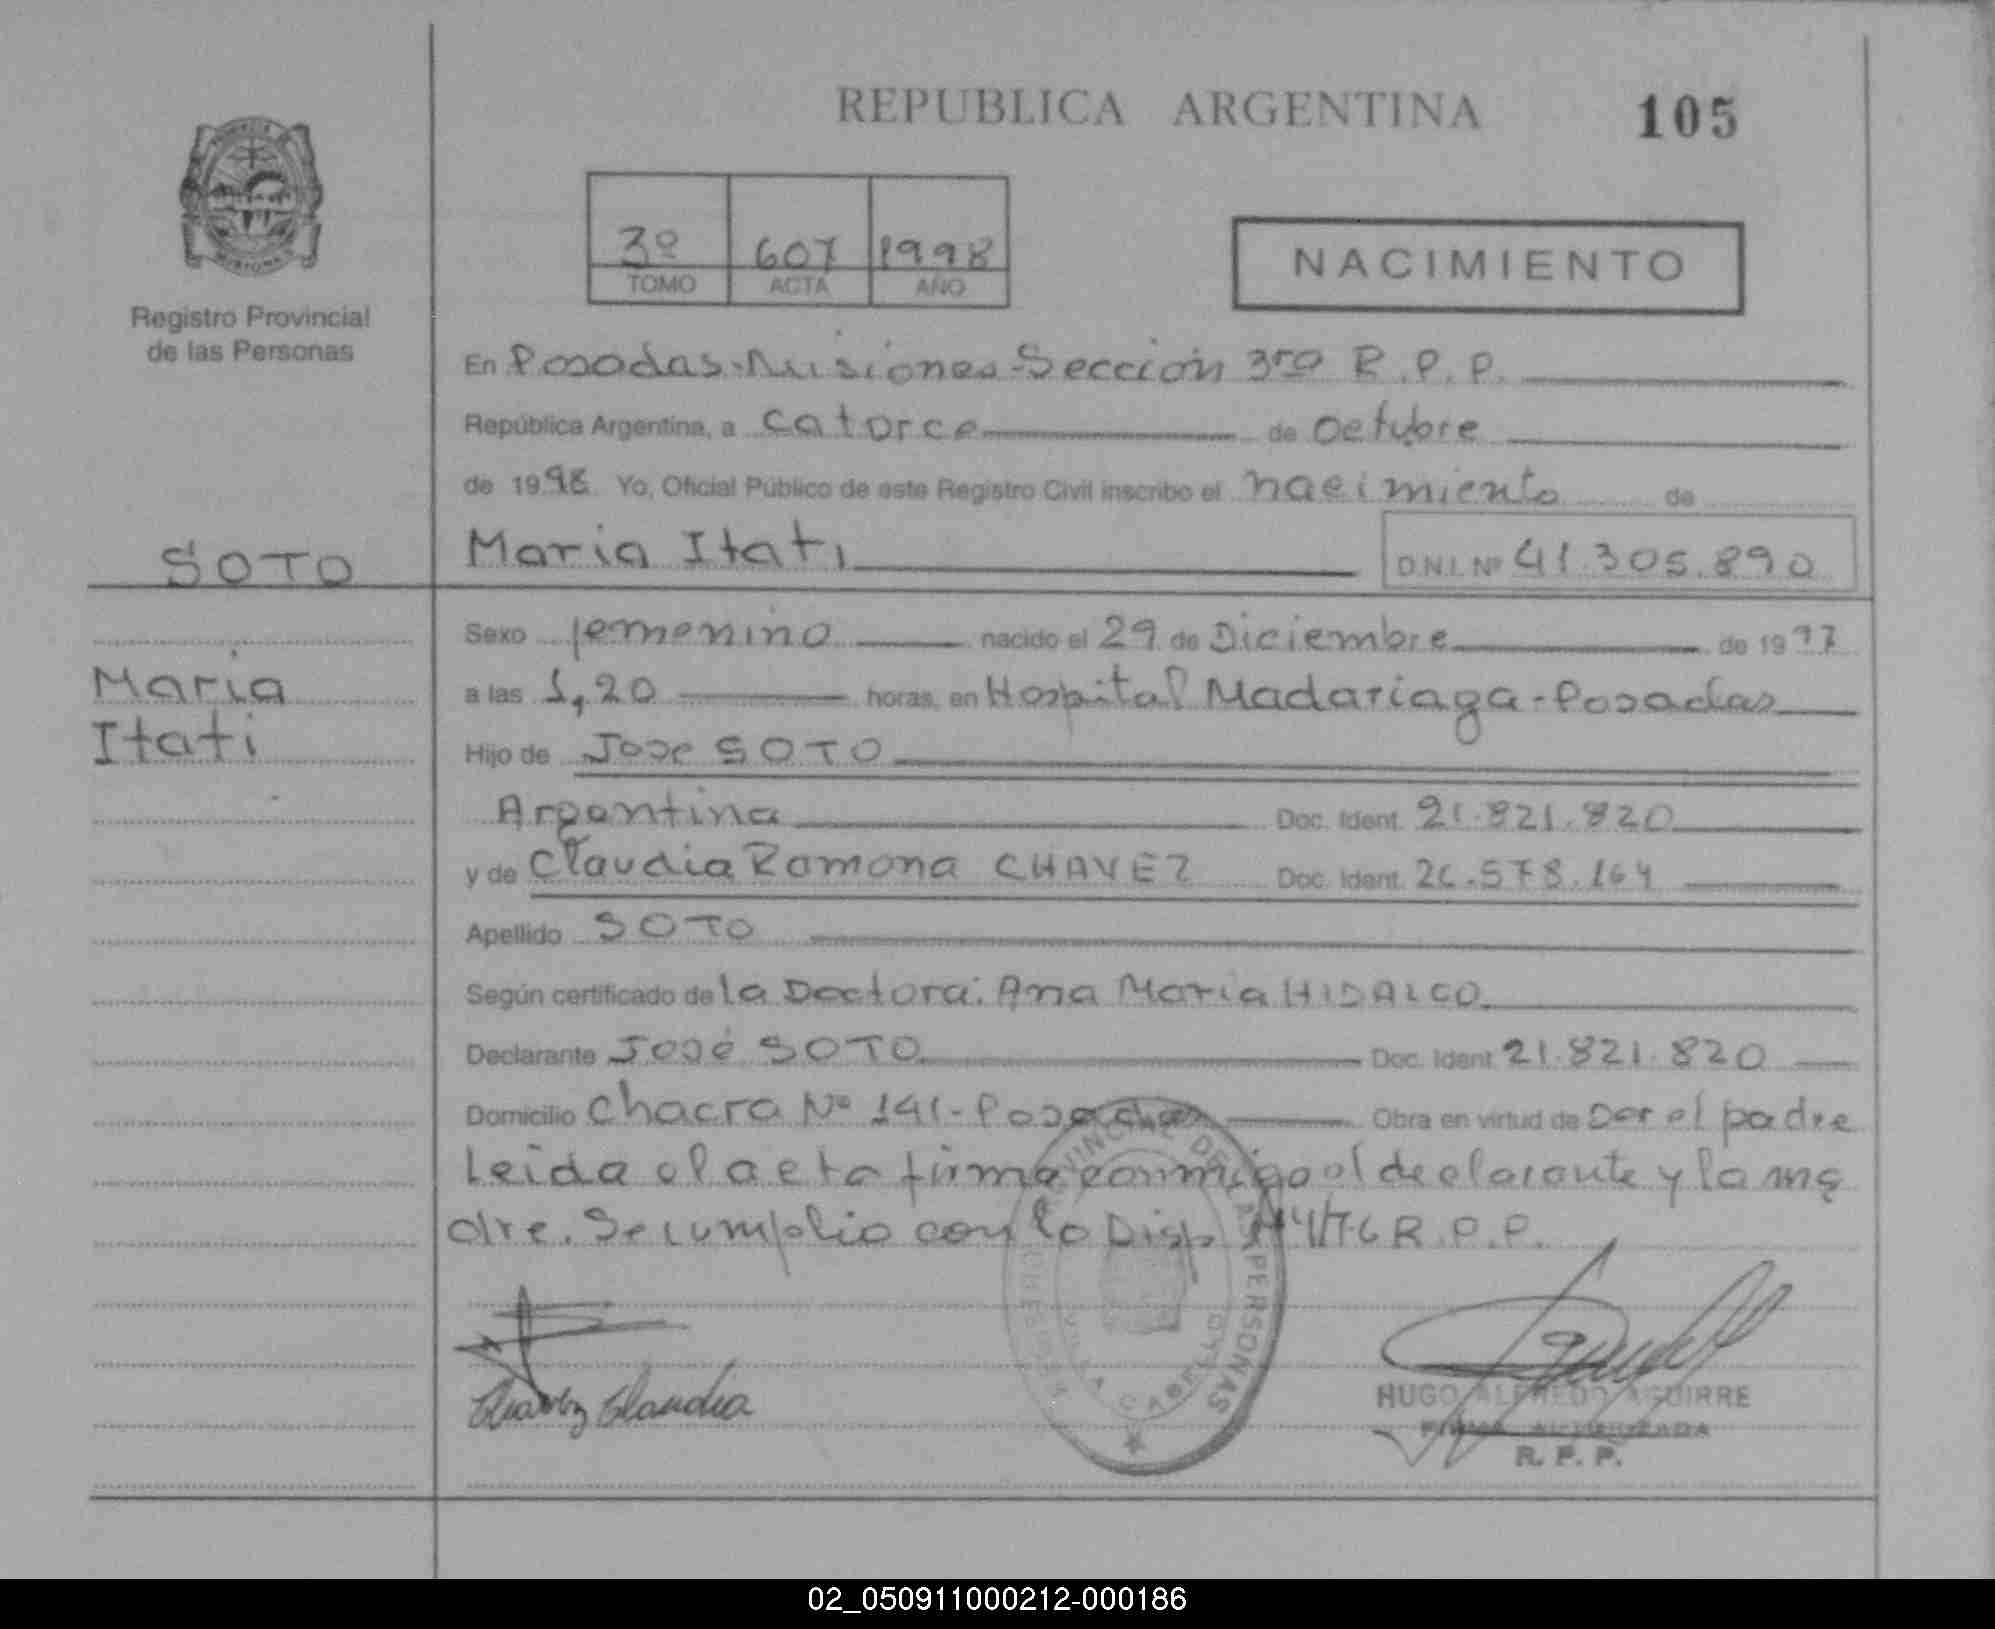 REPUBLICA ARGENTINA 105
3º 607 1998
TOMO ACTA AÑO
NACIMIENTO
Registro Provincial
de las Personas
En Posadas-Misiones-Sección 3ra R.P.P.
República Argentina, a catorce de Octubre
de 1998 Yo, Oficial Público de este Registro Civil inscribo el nacimiento de
SOTO
Maria Itati D.N.I. Nº 41.305.890
Sexo femenino nacido el 29 de Diciembre de 1997
Maria
Itati
a las 1,20 horas, en Hospital Madariaga-Posadas
Hijo de Jose SOTO
Argentina Doc. Ident. 21.821.820
y de Claudia Ramona CHAVEZ Doc. Ident. 26.578.164
Apellido SOTO
Según certificado de la Doctora: Ana Maria HIDALGO
Declarante José SOTO Doc. Ident. 21.821.820
Domicilio Chacra Nº 141-Posadas Obra en virtud de ser el padre
Leida el acta firma conmigo el declarante y la ma
dre. Se cumplio con la Disp. R.P.P.
PROVINCIAL DE LAS PERSONAS
VILLA CABELLO
Chavez Claudia
HUGO ALFREDO AGUIRRE
FIRMA AUTORIZADA
R.P.P.
02_050911000212-000186